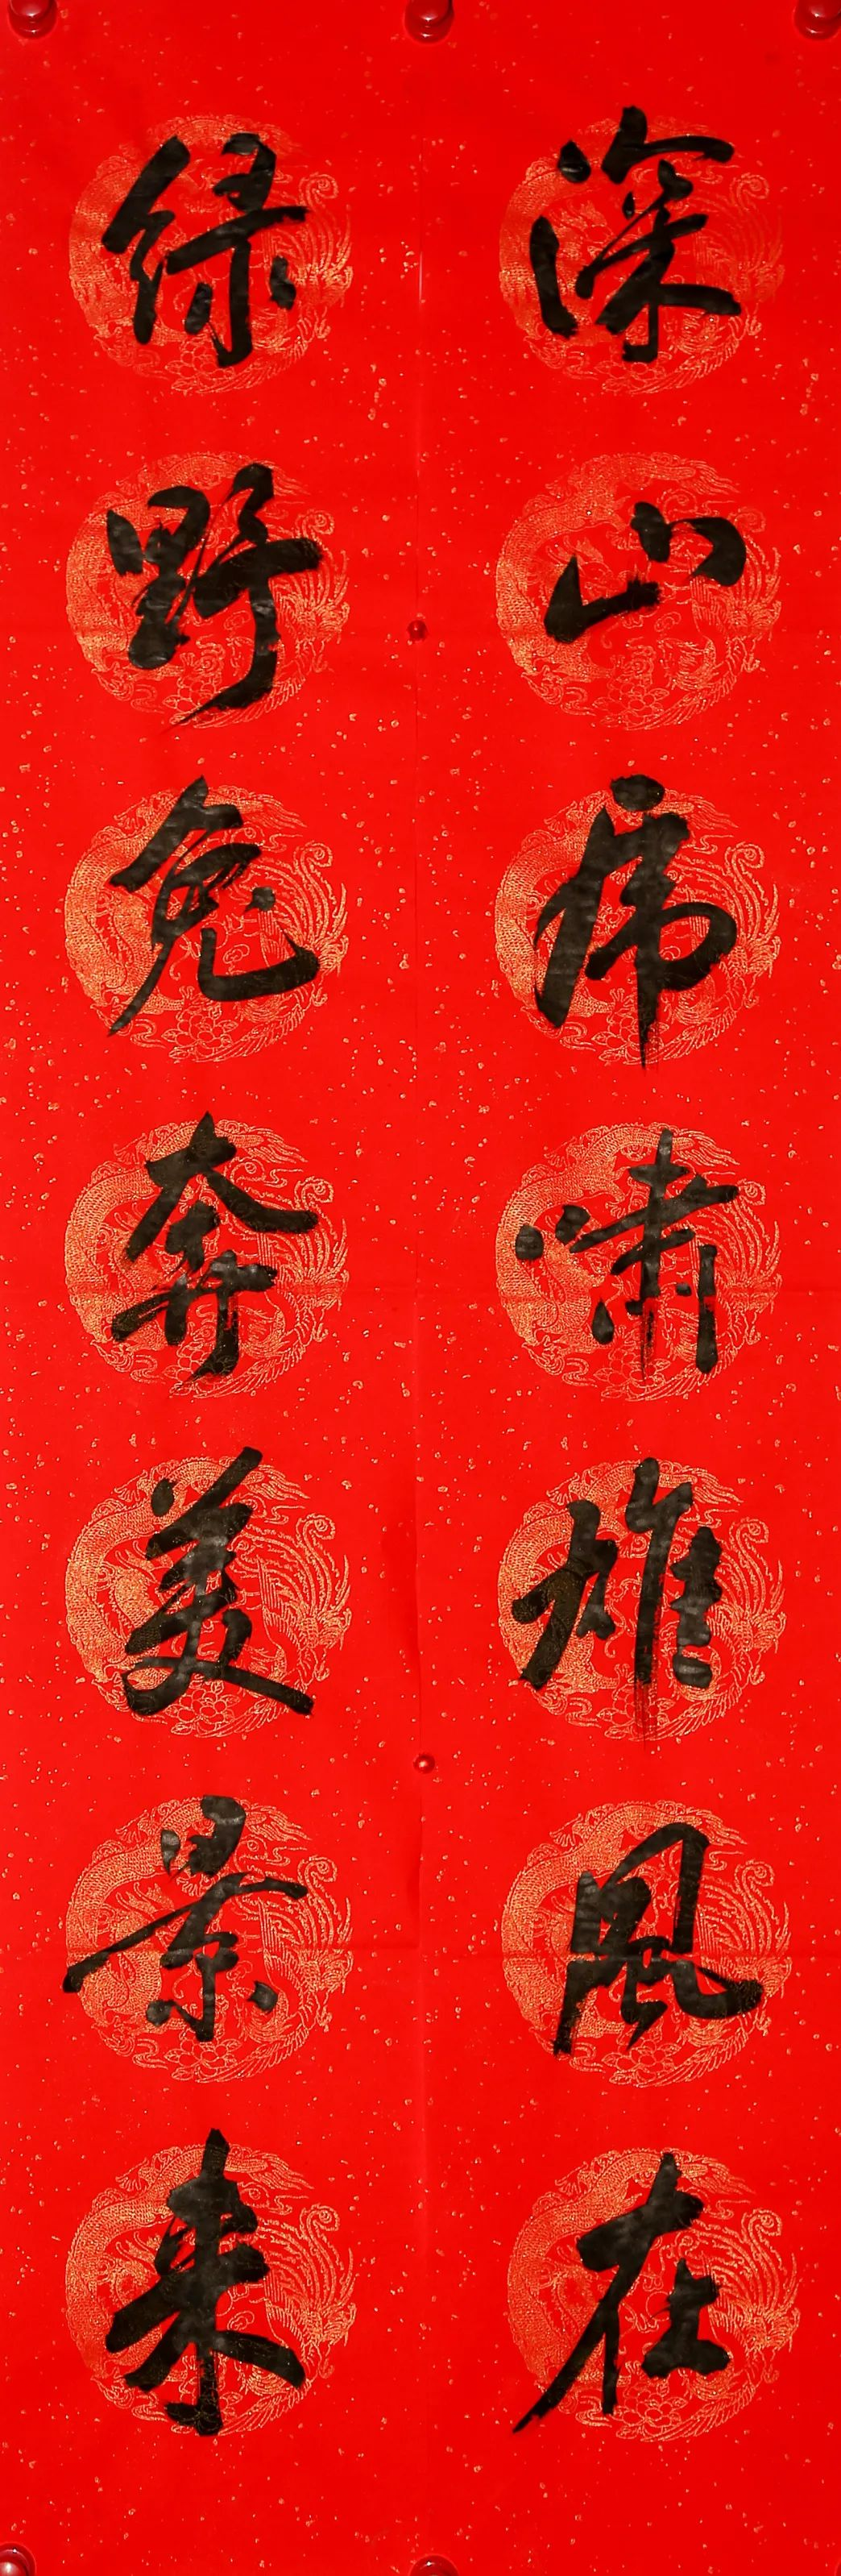 深山虎啸雄风在
绿野兔奔美景来